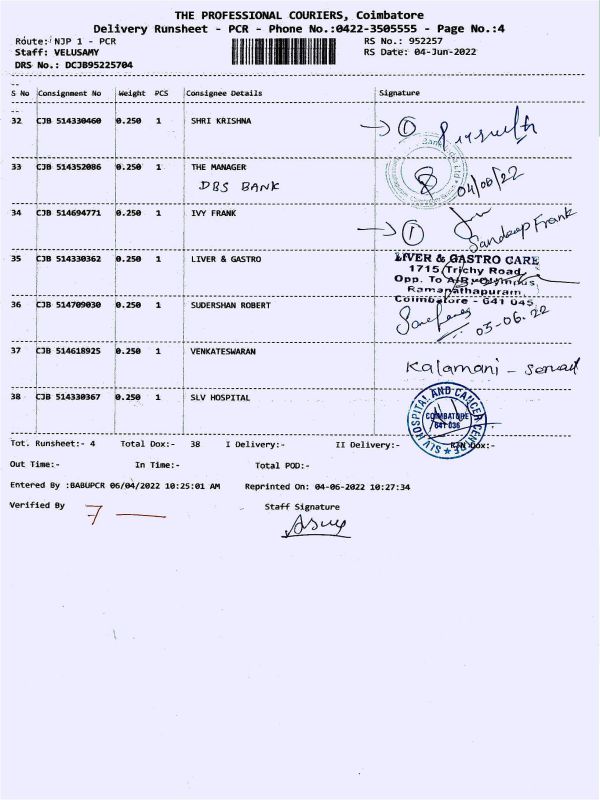 THE PROFESSIONAL COURIERS, Coimbatore
Delivery Runsheet - PCR - Phone No.:0422-3505555 - Page No.:4
Route: NJP 1 - PCR RS No.: 952257
Staff: VELUSAMY RS Date: 04-Jun-2022
DRS No.: DCJB95225704
S No Consignment No Weight PCS Consignee Details Signature
32 CJB 514330460 0.250 1 SHRI KRISHNA
33 CJB 514352086 0.250 1 THE MANAGER
DBS BANK 04/06/22
34 CJB 514694771 0.250 1 IVY FRANK
Sandeep Frank
35 CJB 514330362 0.250 1 LIVER & GASTRO LIVER & GASTRO CARE
1715, Trichy Road,
Opp. To
Ramanathapuram,
Coimbatore - 641 045.
36 CJB 514709030 0.250 1 SUDERSHAN ROBERT
03-06.22
37 CJB 514618925 0.250 1 VENKATESWARAN
Kalamani -
38 CJB 514330367 0.250 1 SLV HOSPITAL SLV HOSPITAL AND CANCER CENTRE
COIMBATORE
641 036
Tot. Runsheet:- 4 Total Dox:- 38 I Delivery:- II Delivery:- Dox:-
Out Time:- In Time:- Total POD:-
Entered By :BABUPCR 06/04/2022 10:25:01 AM Reprinted On: 04-06-2022 10:27:34
Verified By Staff Signature